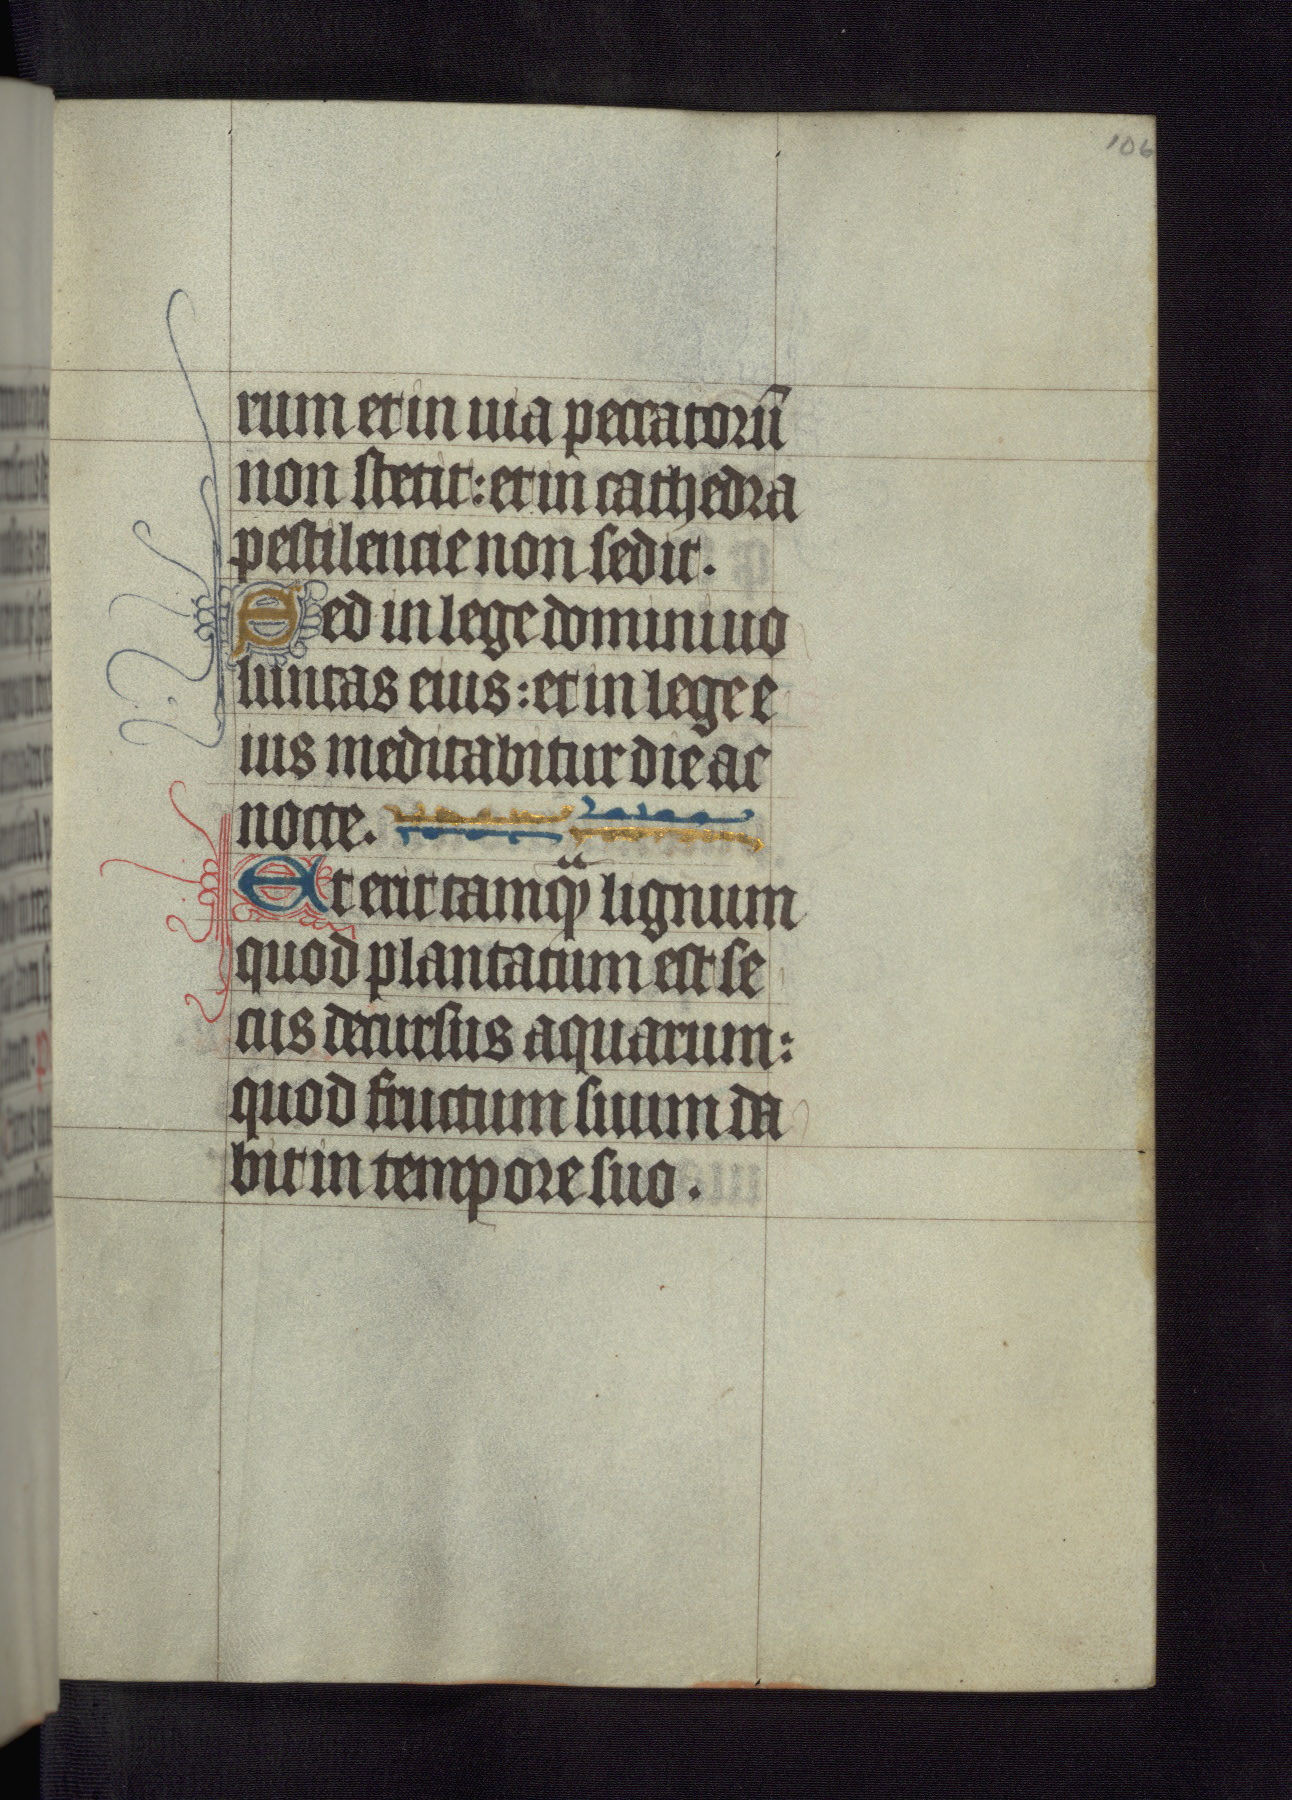 106
rum et in uia peccatorū
non stetit: et in cathedra
pestilencie non sedit.
Eed in lege domini uo
luntas eius: et in lege e
ius meditabitur die ac
nocte.
Et erit tamqᷓ lignum
quod plantatum est se
cus decursus aquarum:
quod fructum suum da
bit in tempore suo.